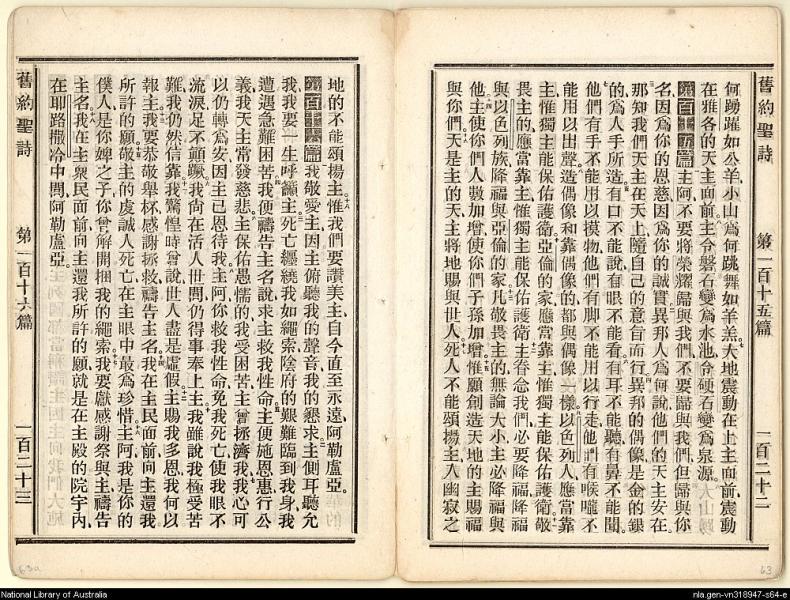 舊約聖詩 第一百十五篇 一百二十二
何踴躍如公羊小山爲何跳舞如羊羔大地震動在上主面前震動
在雅各的天主面前主令磐石變爲水池令硬石變爲泉源
第一百十五篇主阿不要將榮耀歸與我們不要歸與我們但歸與你
名因爲你的恩慈因爲你的誠實異邦人爲何說他們的天主安在
那知我們天主在天上隨自己的意旨而行異邦的偶像是金的銀
的爲人手所造有口不能說有眼不能看有耳不能聽有鼻不能聞
他們有手不能用以摸物他們有脚不能用以行走他們有喉嚨不
能用以出聲造偶像和靠偶像的都與偶像一樣以色列人應當靠
主惟獨主能保佑護衛亞倫的家應當靠主惟獨主能保佑護衛敬
畏主的應當靠主惟獨主能保佑護衛主眷念我們必要降福降福
與以色列族降福與亞倫的家凡敬畏主的無論大小主必降福與
他主使你們人數加增使你們子孫加增惟願創造天地的主賜福
與你們天是主的天主將地賜與世人死人不能頌揚主入幽寂之
舊約聖詩 第一百十六篇 一百二十三
地的不能頌揚主惟我們要讚美主自今直至永遠阿勒盧亞
第一百十六篇我敬愛主因主俯聽我的聲音我的懇求主側耳聽允
我我要一生呼籲主死亡纏繞我如繩索陰府的艱難臨到我身我
遭遇急難困苦我便禱告主名說求主救我性命主便施恩惠行公
義我天主常發慈悲主保佑愚懦的我受困苦主曾拯濟我我心可
以仍轉爲安因主已恩待我主阿你救我性命免我死亡使我眼不
流淚足不顛蹶我尚在活人世間仍得事奉上主我雖說我極受苦
難我仍然信靠我驚惶時曾說世人盡是虛假主賜我多恩我何以
報主我要恭敬舉杯感謝拯救禱告主名我在主民面前向主還我
所許的願敬主的虔誠人死亡在主眼中最爲珍惜主阿我是你的
僕人是你婢之子你曾解開捆我的繩索我要獻感謝祭與主禱告
主名我在主衆民面前向主還我所許的願就是在主殿的院宇內
在耶路撒冷中間阿勒盧亞
63a
63
National Library of Australia
nla.gen-vn318947-s64-e